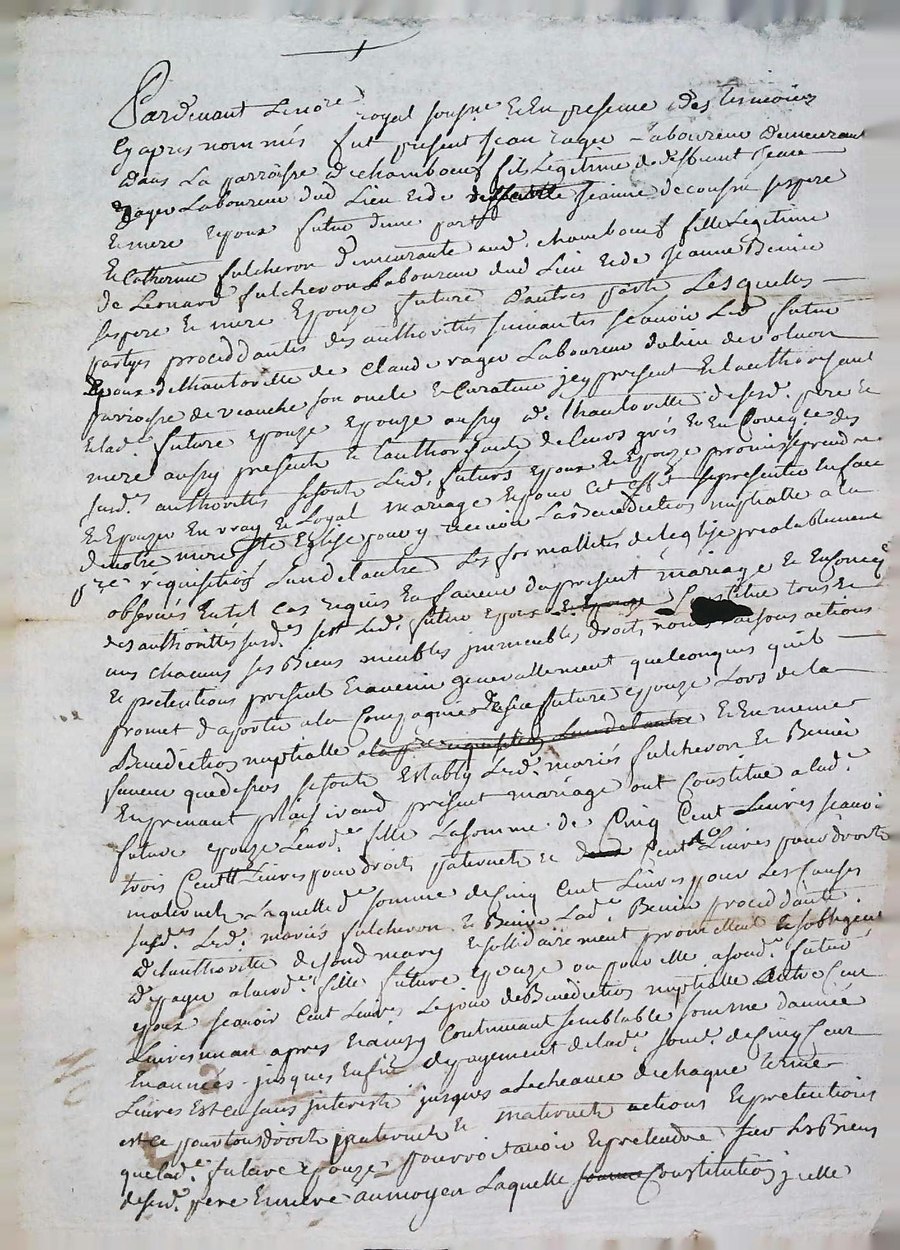 Pardevant Le no.re royal soussigné Et En presence des temoins
Cy apres nommés fut present Jean rager Laboureur demeurant
dans La parroisse de chamboeuf fils Legitime de deffunt Jean
rager Laboureur dud Lieu Et de Jeanne decousu ses pere
Et mere Epoux futur d'une part
Et Catherine fulcheron demeurante aud. chamboeuf fille Legitime
de Leonard fulcheron Laboureur dud Lieu Et de Jeanne Benier
ses pere Et mere Epouze future d'autres parts Lesquelles
partyes proceddantes des authorités suivantes sçavoir Led. futur
Epoux de L'hautoritte de Claude rager Laboureur du lieu de volvon
parroisse de veauche son oncle Et Curateur jcy present Et L'authorisant
Et lad. future Epouze Epouze aussy de L'hautoritté desd. pere Et
mere aussy presents Et L'authorisants de Leurs grés Et En Conseq.ce des
susd.s authorités se sont Led. futurs Epoux Et Epouze promis se prendre
Et Epouzer En vray Et Loyal mariage Et pour Cet effet se presenter En face
de notre mere s.te Eglise pour y recevoir La Benediction nuptialle a la
p.re requisition L'un de L'autre Les formallités de l'eglise prealablement
observés En tel Cas requis En faveur du present mariage Et En Conseq
des authorittes susd.s s'est Led. futur Epoux Constitue tous Et
uns chacuns ses Biens meubles jmmeubles droits noms raisons actions
Et pretentions presents Et avenir generallement quelconques qu'il
promet d'aporter a la Compagnie de sa future Epouze Lors de la
Benediction nuptialle a la p.re requisition L'un de L'autre Et En meme
faveur que dessus se sont Establis Led. mariés fulcheron Et Benier
En prenant plaisir aud present mariage ont Constitué a lad.
future Epouze Leurd.e fille La somme de Cinq Cent Livres sçavoir
trois Cent Livres pour droits paternels Et deux Cent Livres pour droits
maternels Laquelle d.e somme de Cinq Cent Livres pour Les Causes
susd.s Led. mariés fulcheron Et Benier Lad.e Benier proceddante
de L'authoritté de sond mary Et sollidairement promettent Et s'obligent
de payer a leurd.e fille future Epouze ou pour elle a sond. futur
Epoux sçavoir Cent Livres Le jour de Benediction nuptialle autre Cent
Livres un an apres Et ainsy Continuant semblable somme d'année
En années jusques En fin de payement de lad.e som.e de Cinq Cent
Livres Est Ce sans jnterests jusques a L'echeance de chaque terme
est Ce pour tous droits paternels Et maternels actions Et pretentions
que lad.e future Epouze pourroit avoir Et pretendre sur Les Biens
desd. pere Et mere au moyen Laquelle somme Constitution jcelle